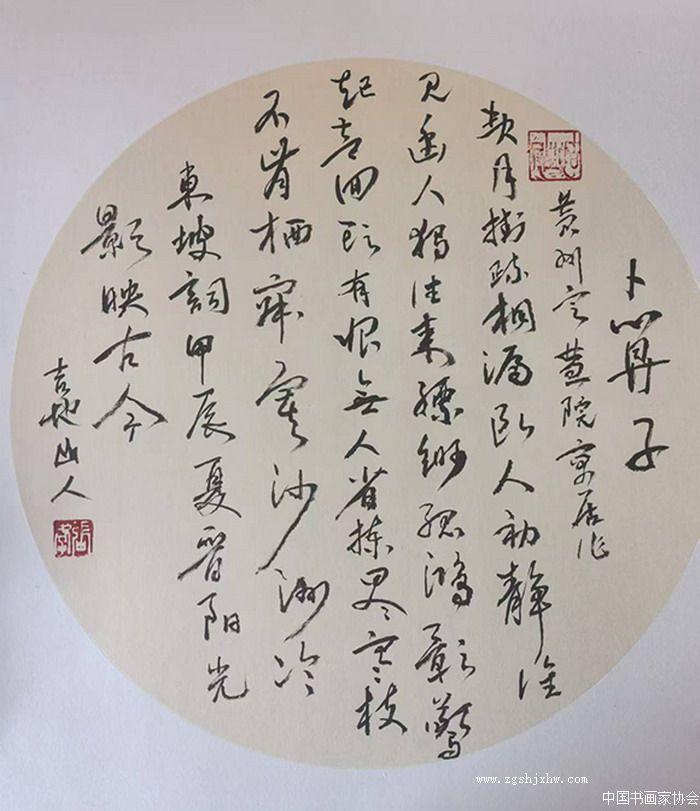 卜算子
黄州定慧院寓居作
缺月掛疏桐漏断人初静谁
见幽人獨往来缥缈孤鸿影驚
起却回头有恨無人省揀尽寒枝
不肯栖寂寞沙洲冷
東坡詞甲辰夏晋阳光
影映古今
吉地山人
www.zgshjxhw.com
中国书画家协会